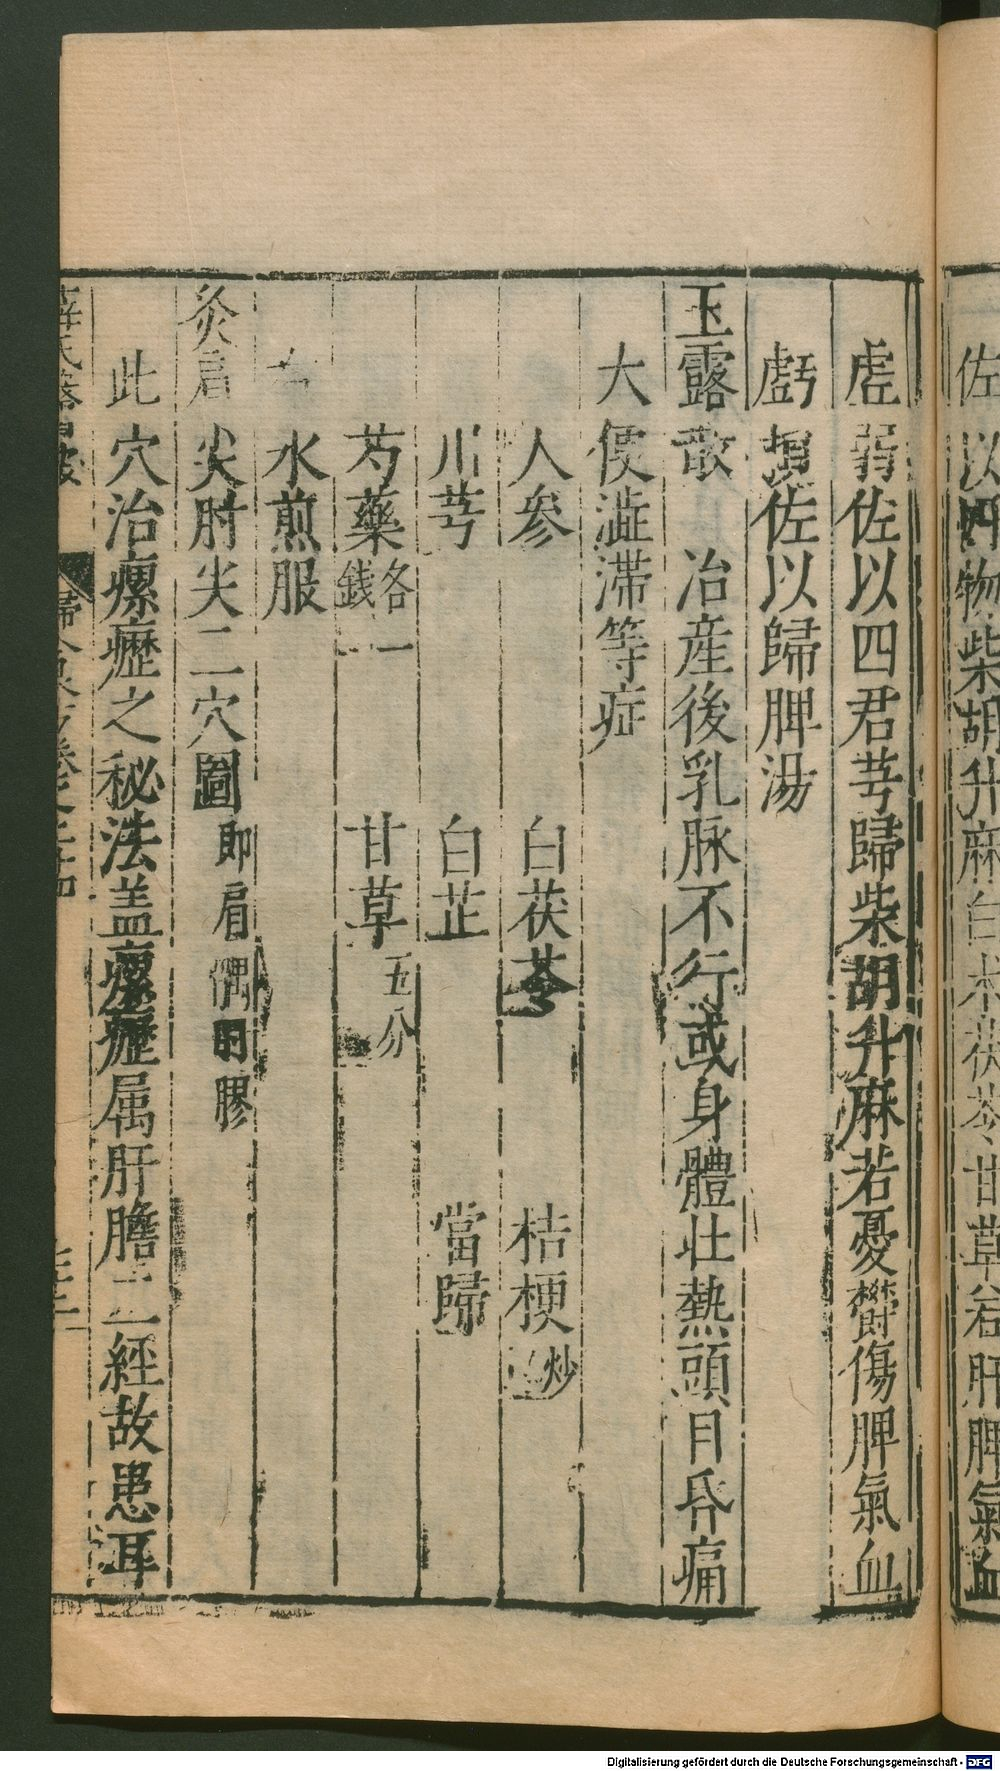 佐以四物柴胡升麻白朮茯苓甘草若肝脾氣血
虗弱佐以四君芎歸柴胡升麻若憂欝傷脾氣血
虧損佐以歸脾湯
玉露散　治産後乳脉不行或身體壯熱頭目昏痛
大便澁滯等症
人參　白茯苓　桔梗炒
川芎　白芷　當歸
芍藥各一錢　甘草五分
右水煎服
灸肩尖肘尖二穴圖即肩偶肘膠
此穴治瘰癧之秘法盖瘰癧属肝膽二經故患耳
Digitalisierung gefördert durch die Deutsche Forschungsgemeinschaft - DFG